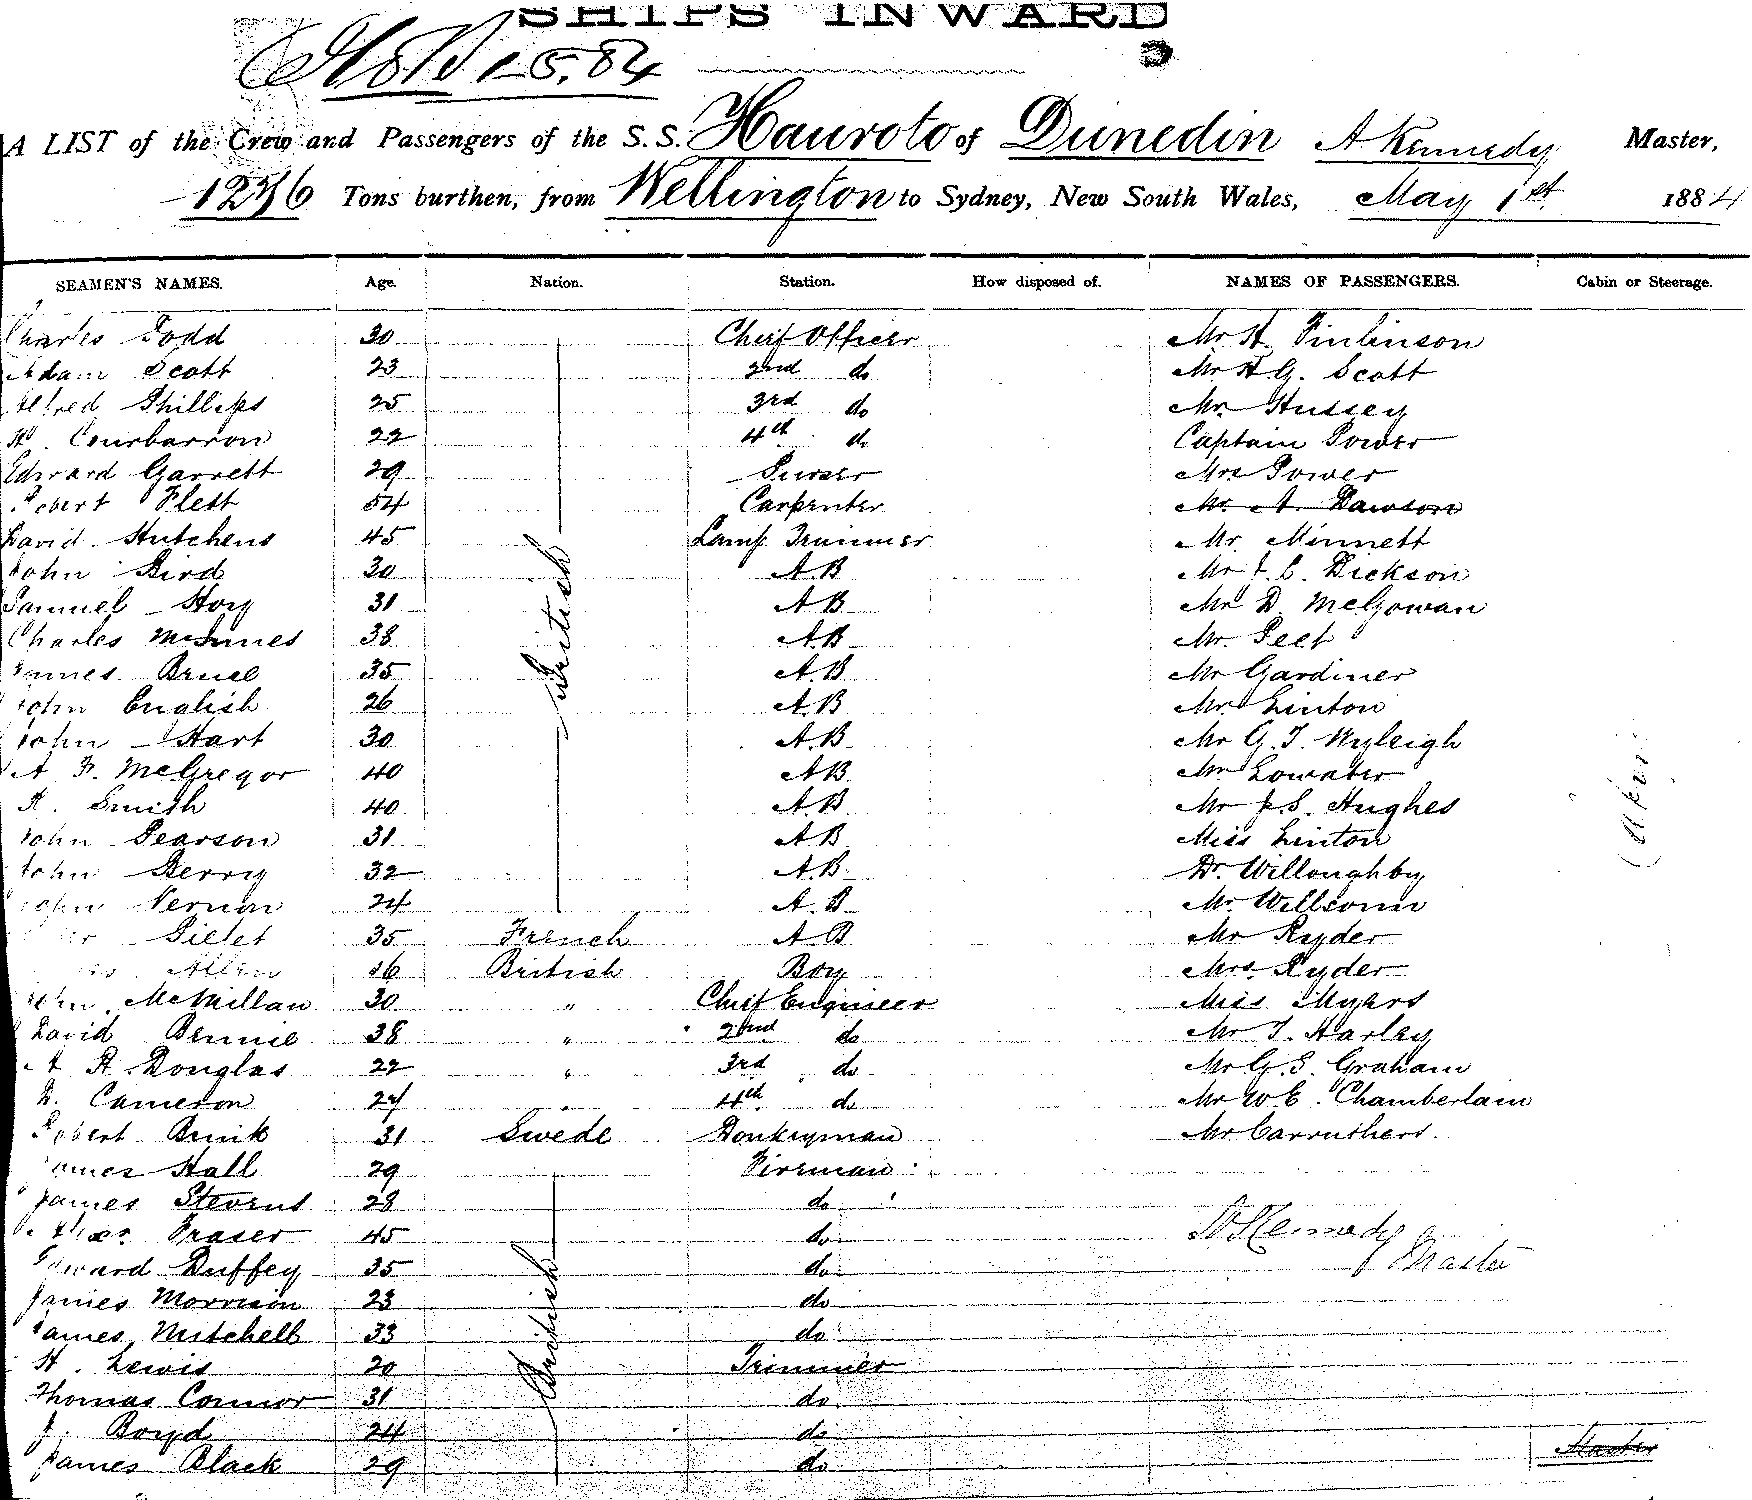 SHIPS INWARD
A LIST of the Crew and Passengers of the S.S. Hauroto of Dunedin A Kennedy Master,
1276 Tons burthen, from Wellington to Sydney, New South Wales, May 1st 1884
SEAMEN'S NAMES. Age. Nation. Station. How disposed of. NAMES OF PASSENGERS. Cabin or Steerage.
Charles Todd 30 Cheif Officer Mr H. Pinlinson
Adam Scott 23 2nd do Mr H.G. Scott
Alfred Phillips 25 3rd do Mr. Hussey
H. Courbarron 22 4th do Captain Power
Edward Garrett 29 Purser Mrs Power
Robert Flett 54 Carpenter Mr. A. Dawson
David Hutchens 45 Lamp Trimmer Mr. Minnett
John Bird 30 A.B Mr J. C. Dickson
Samuel Hoy 31 A B Mr D McGowan
Charles McInnes 38 A.B Mr. Peet
James Bruce 35 A.B Mr Gardiner
John English 26 A.B Mr. Linton
John Hart 30 A.B Mr G. T. Wyleigh
A F. McGregor 40 A B Mr Lowater
R. Smith 40 A.B Mr J.S. Hughes
John Pearson 31 A B Miss Linton
John Berry 32 A.B. Dr. Willoughby
John Vernon 24 A.B Mr. Wellsomn
Pillet 35 French A B Mr Ryder
Allen 16 British Boy Mrs. Ryder
John McMillan 30 " Chief Engineer Miss Myers
David Bennie 38 " 2nd do Mr T. Harley
A R. Douglas 22 " 3rd do Mr G.S. Graham
D. Cameron 24 " 4th do Mr W.E. Chamberlain
Robert Brink 31 Swede Donkeyman Mr. Carruthers.
James Hall 29 Fireman
British
James Stevens 28 do
Fraser 45 do A Kennedy
Edward Duffey 35 do Master
James Morrison 23 do
James Mitchell 33 do
British
H. Lewis 20 Trimmer
Thomas Connor 31 do
J. Boyd 24 do
James Black 29 do Master